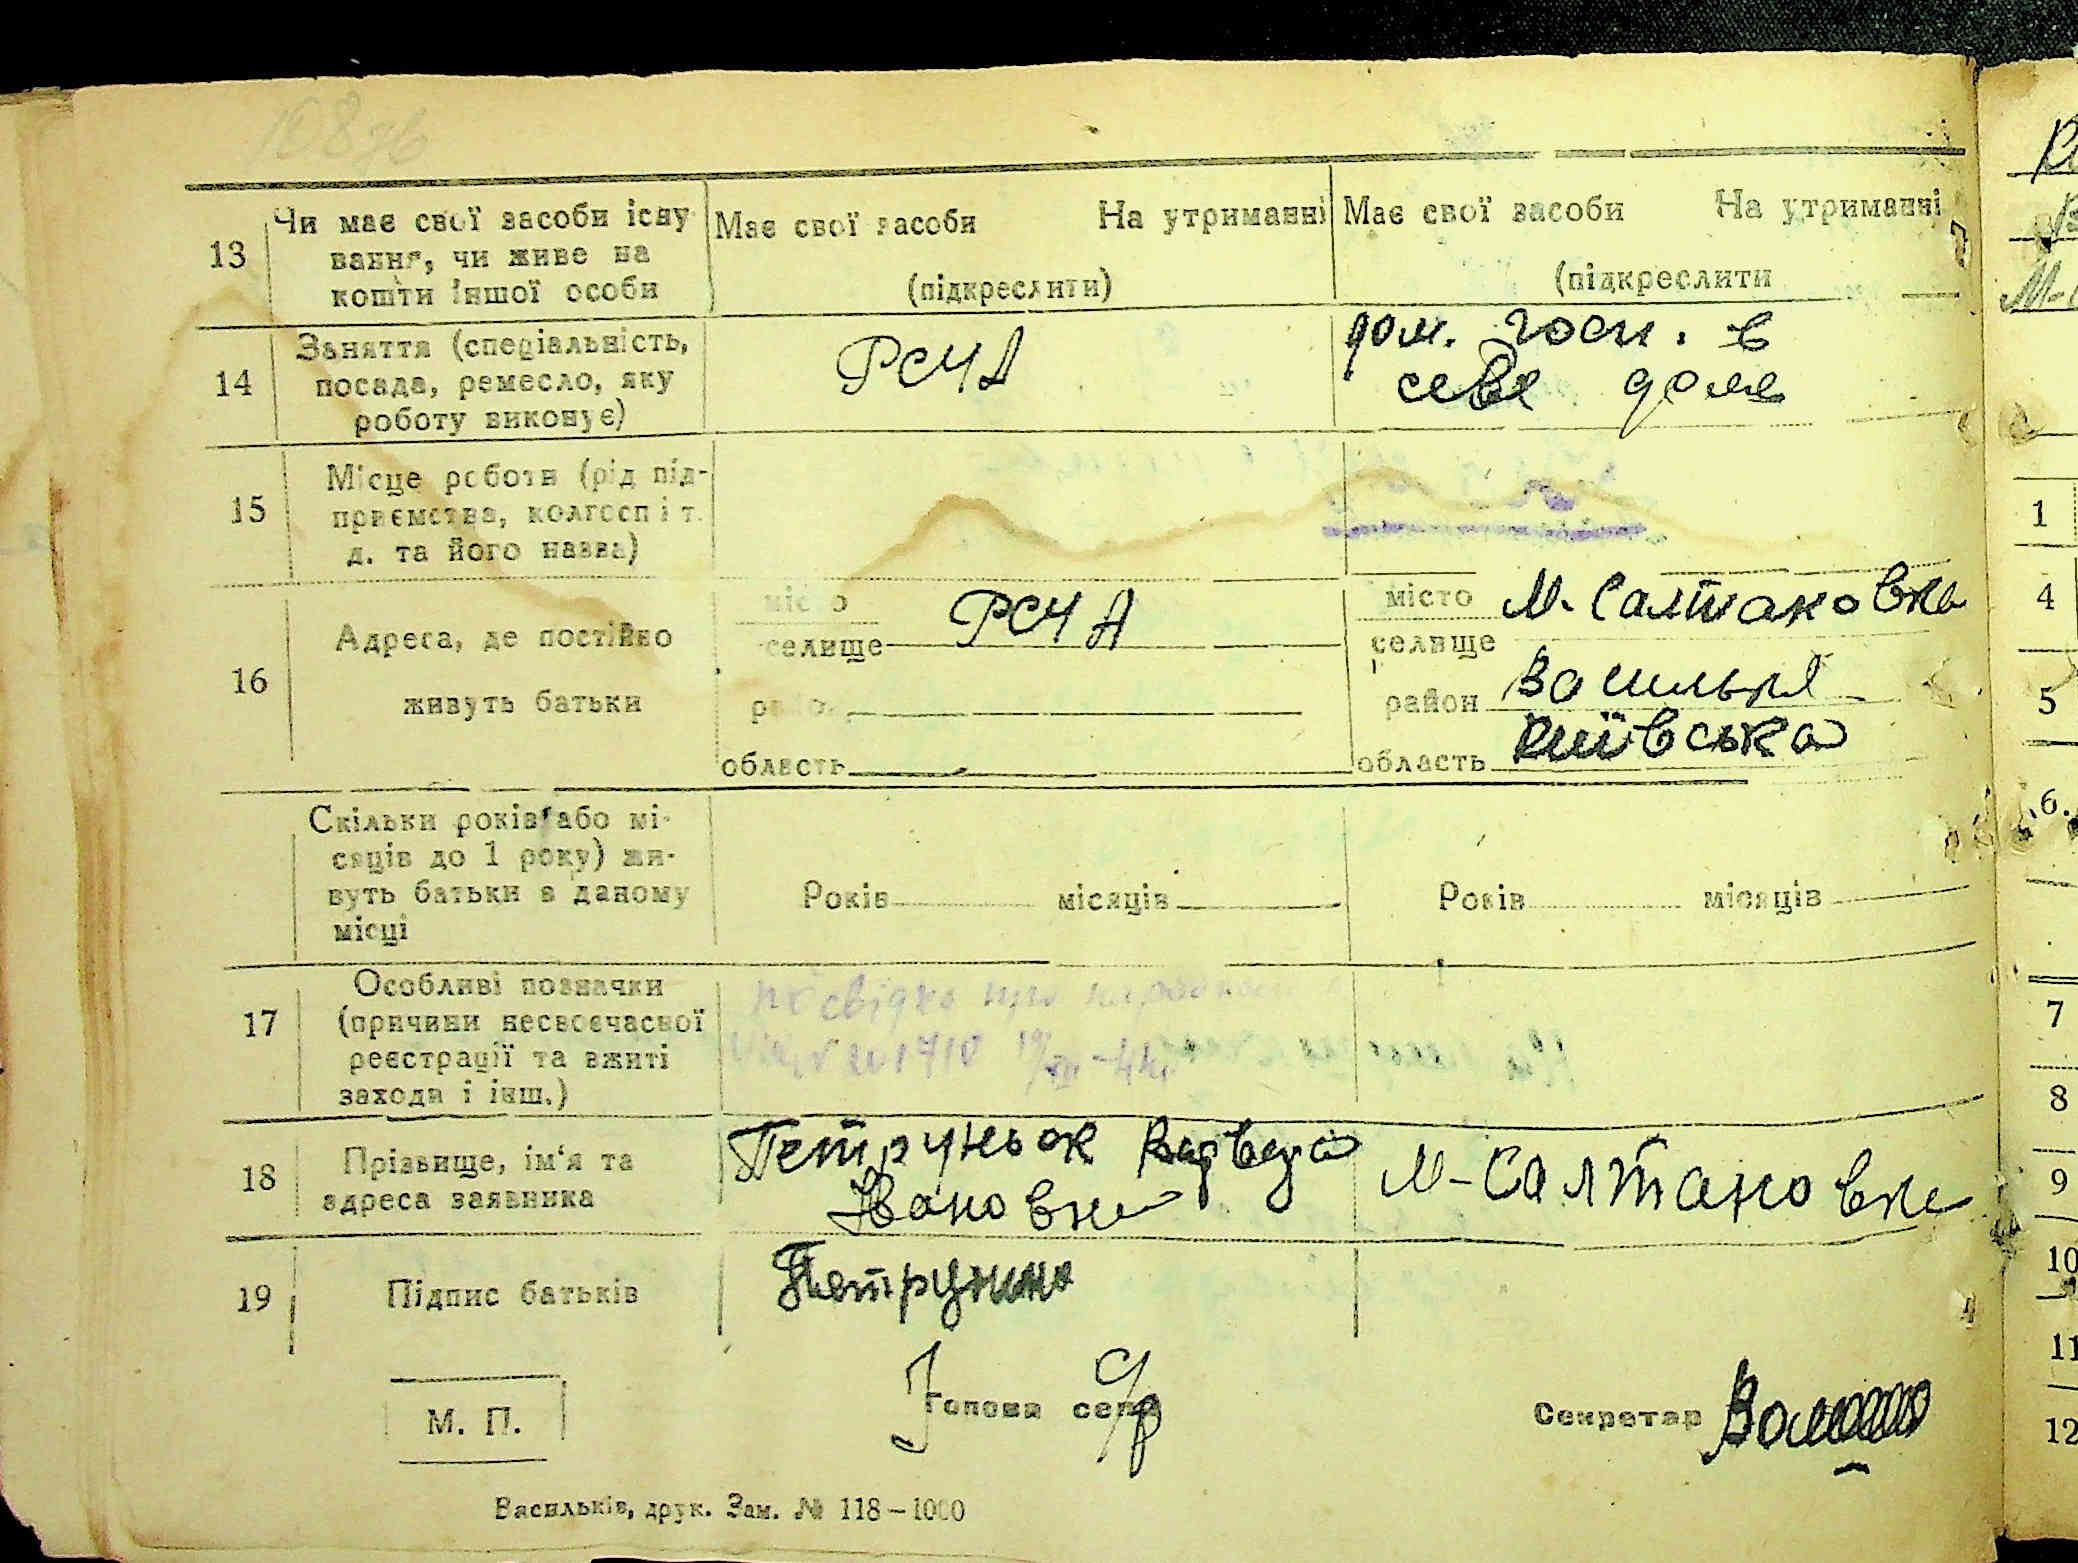 168зв
13
Чи має свої засоби існу
вання, чи живе на
кошти іншої особи
Має свої засоби На утриманні
(підкреслити)
Має свої засоби На утриманні
(підкреслити
14
Заняття (спеціальність,
посада, ремесло, яку
роботу виконує)
РСЧА
дом. госп. в
себе дома
15
Місце роботи (рід під-
приємства, колгосп і т.
д. та його назва)
16
Адреса, де постійно
живуть батьки
місто
селище РСЧА
район
область
місто М-Салтановка
селище
район Васильків
область Київська
Скільки років або мі-
сяців до 1 року) жи-
вуть батьки в даному
місці
Років місяців
Років місяців
17
Особливі позначки
(причини несвоєчасної
реєстрації та вжиті
заходи і інш.)
свідко про народжен
201710
18
Прізвище, ім'я та
адреса заявника
Петруньок Варвара
Івановна
М-Салтановка
19
Підпис батьків
Петрунина
М. П.
Голова с/р
Секретар
Васильків, друк. Зам. № 118–1000
1
4
5
6.
7
8
9
10
11
12